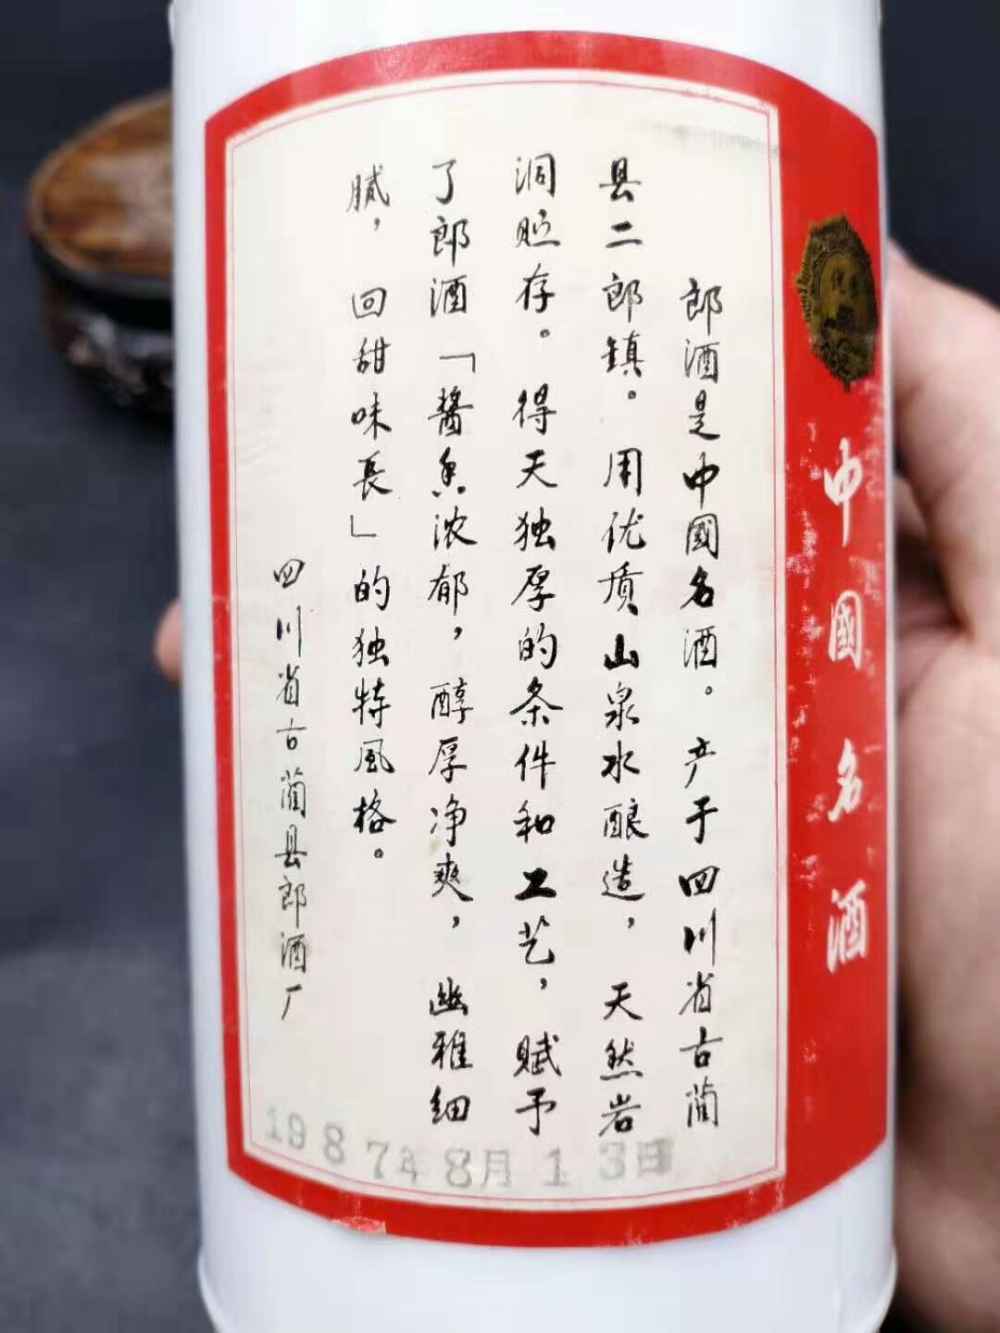 中國名酒
郎酒是中國名酒。产于四川省古蔺
县二郎镇。用优质山泉水酿造，天然岩
洞贮存。得天独厚的条件和工艺，赋予
了郎酒「醬香浓郁，醇厚净爽，幽雅细
腻，回甜味長」的独特風格。
四川省古蔺县郎酒厂
1987年8月13日